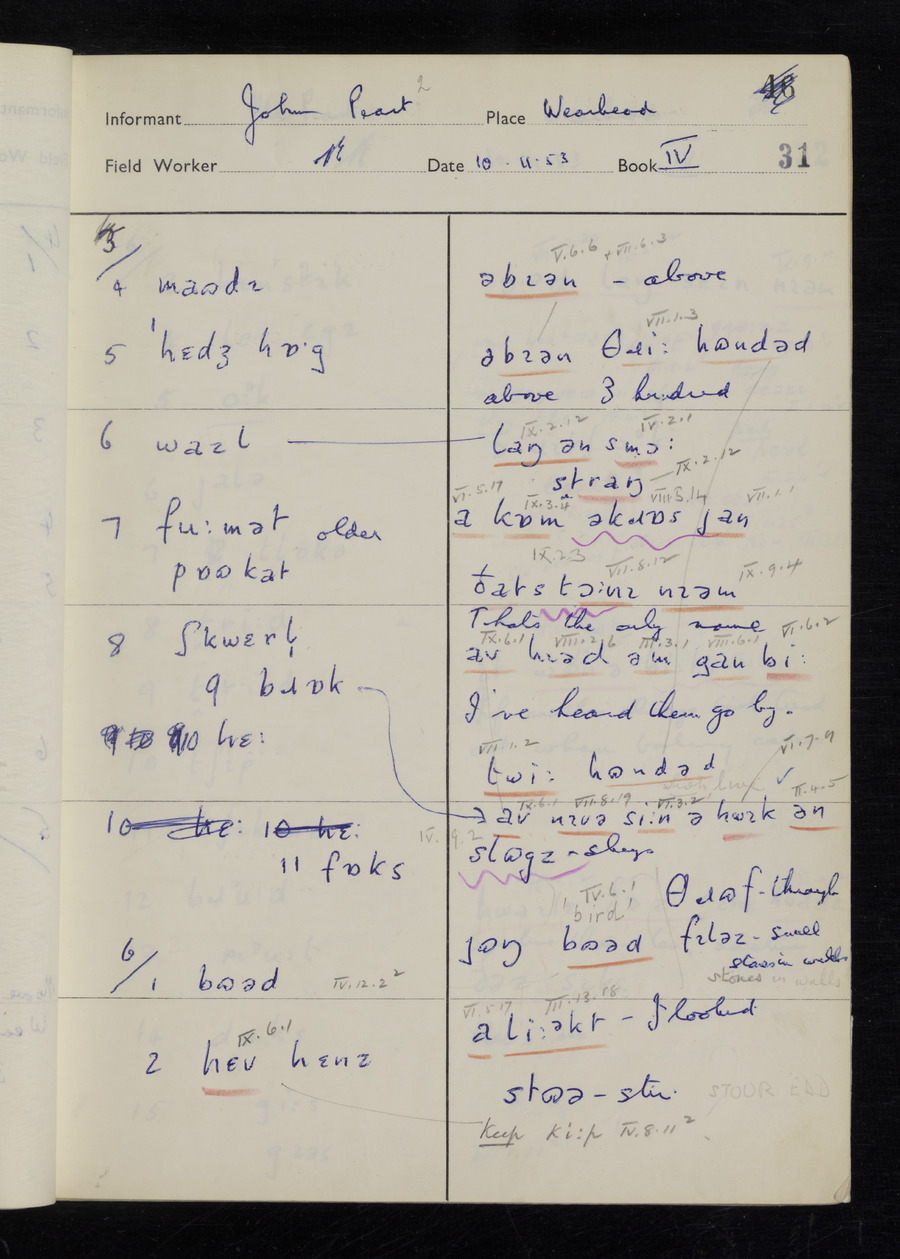 Informant John Peart 2 Place Wearhead
Field Worker Date 10-11-53 Book IV 31
5/
4 maʊdɪ
5 ˈhɛdʒ hɒˑg
6 waɪl
7 fuːmət older
pɒʊkat
8 ʃkwɛrl̩
9 bɹɒk
10 hɛː
11 fɒks
6/1 bɒəd IV.12.2²
IX.6.1
2 hɛv hɛnz
V.6.6 + VII.6.3
əbɪən - above
VII.1.3
əbɪən θɹiː hʊndəd
above 3 hundred
IX.2.12 IV.2.1
laŋ ən smɔː
straŋ IX.2.12
VI.5.17 IX.3.4 VIII.5.14 VII.1.1
a kɒm əkɹɒs jan
IX.2.3 VII.8.12 IX.9.4
ðats təɪnɪ nɪəm
That's the only name
IX.6.1 VIII.2.6 III.3.1 VIII.6.1 VI.6.2
av hɪəd əm gan biː
I've heard them go by.
VII.1.2 VI.7.9
twiː hʊndəd
IX.6.1 VII.8.19 VI.3.2 II.4.5
av nɪvə siːn ə hʊk ən
IV.9.2
slʊgz - slugs
θɹʊf - through
IV.6.1
'bird'
jɒŋ bɒəd flaz - small
stones in walls
stones in walls
VI.5.17 III.13.18
a liːəkt - I looked
stʊə - stir. STOUR
Keep kiːp IV.8.11²